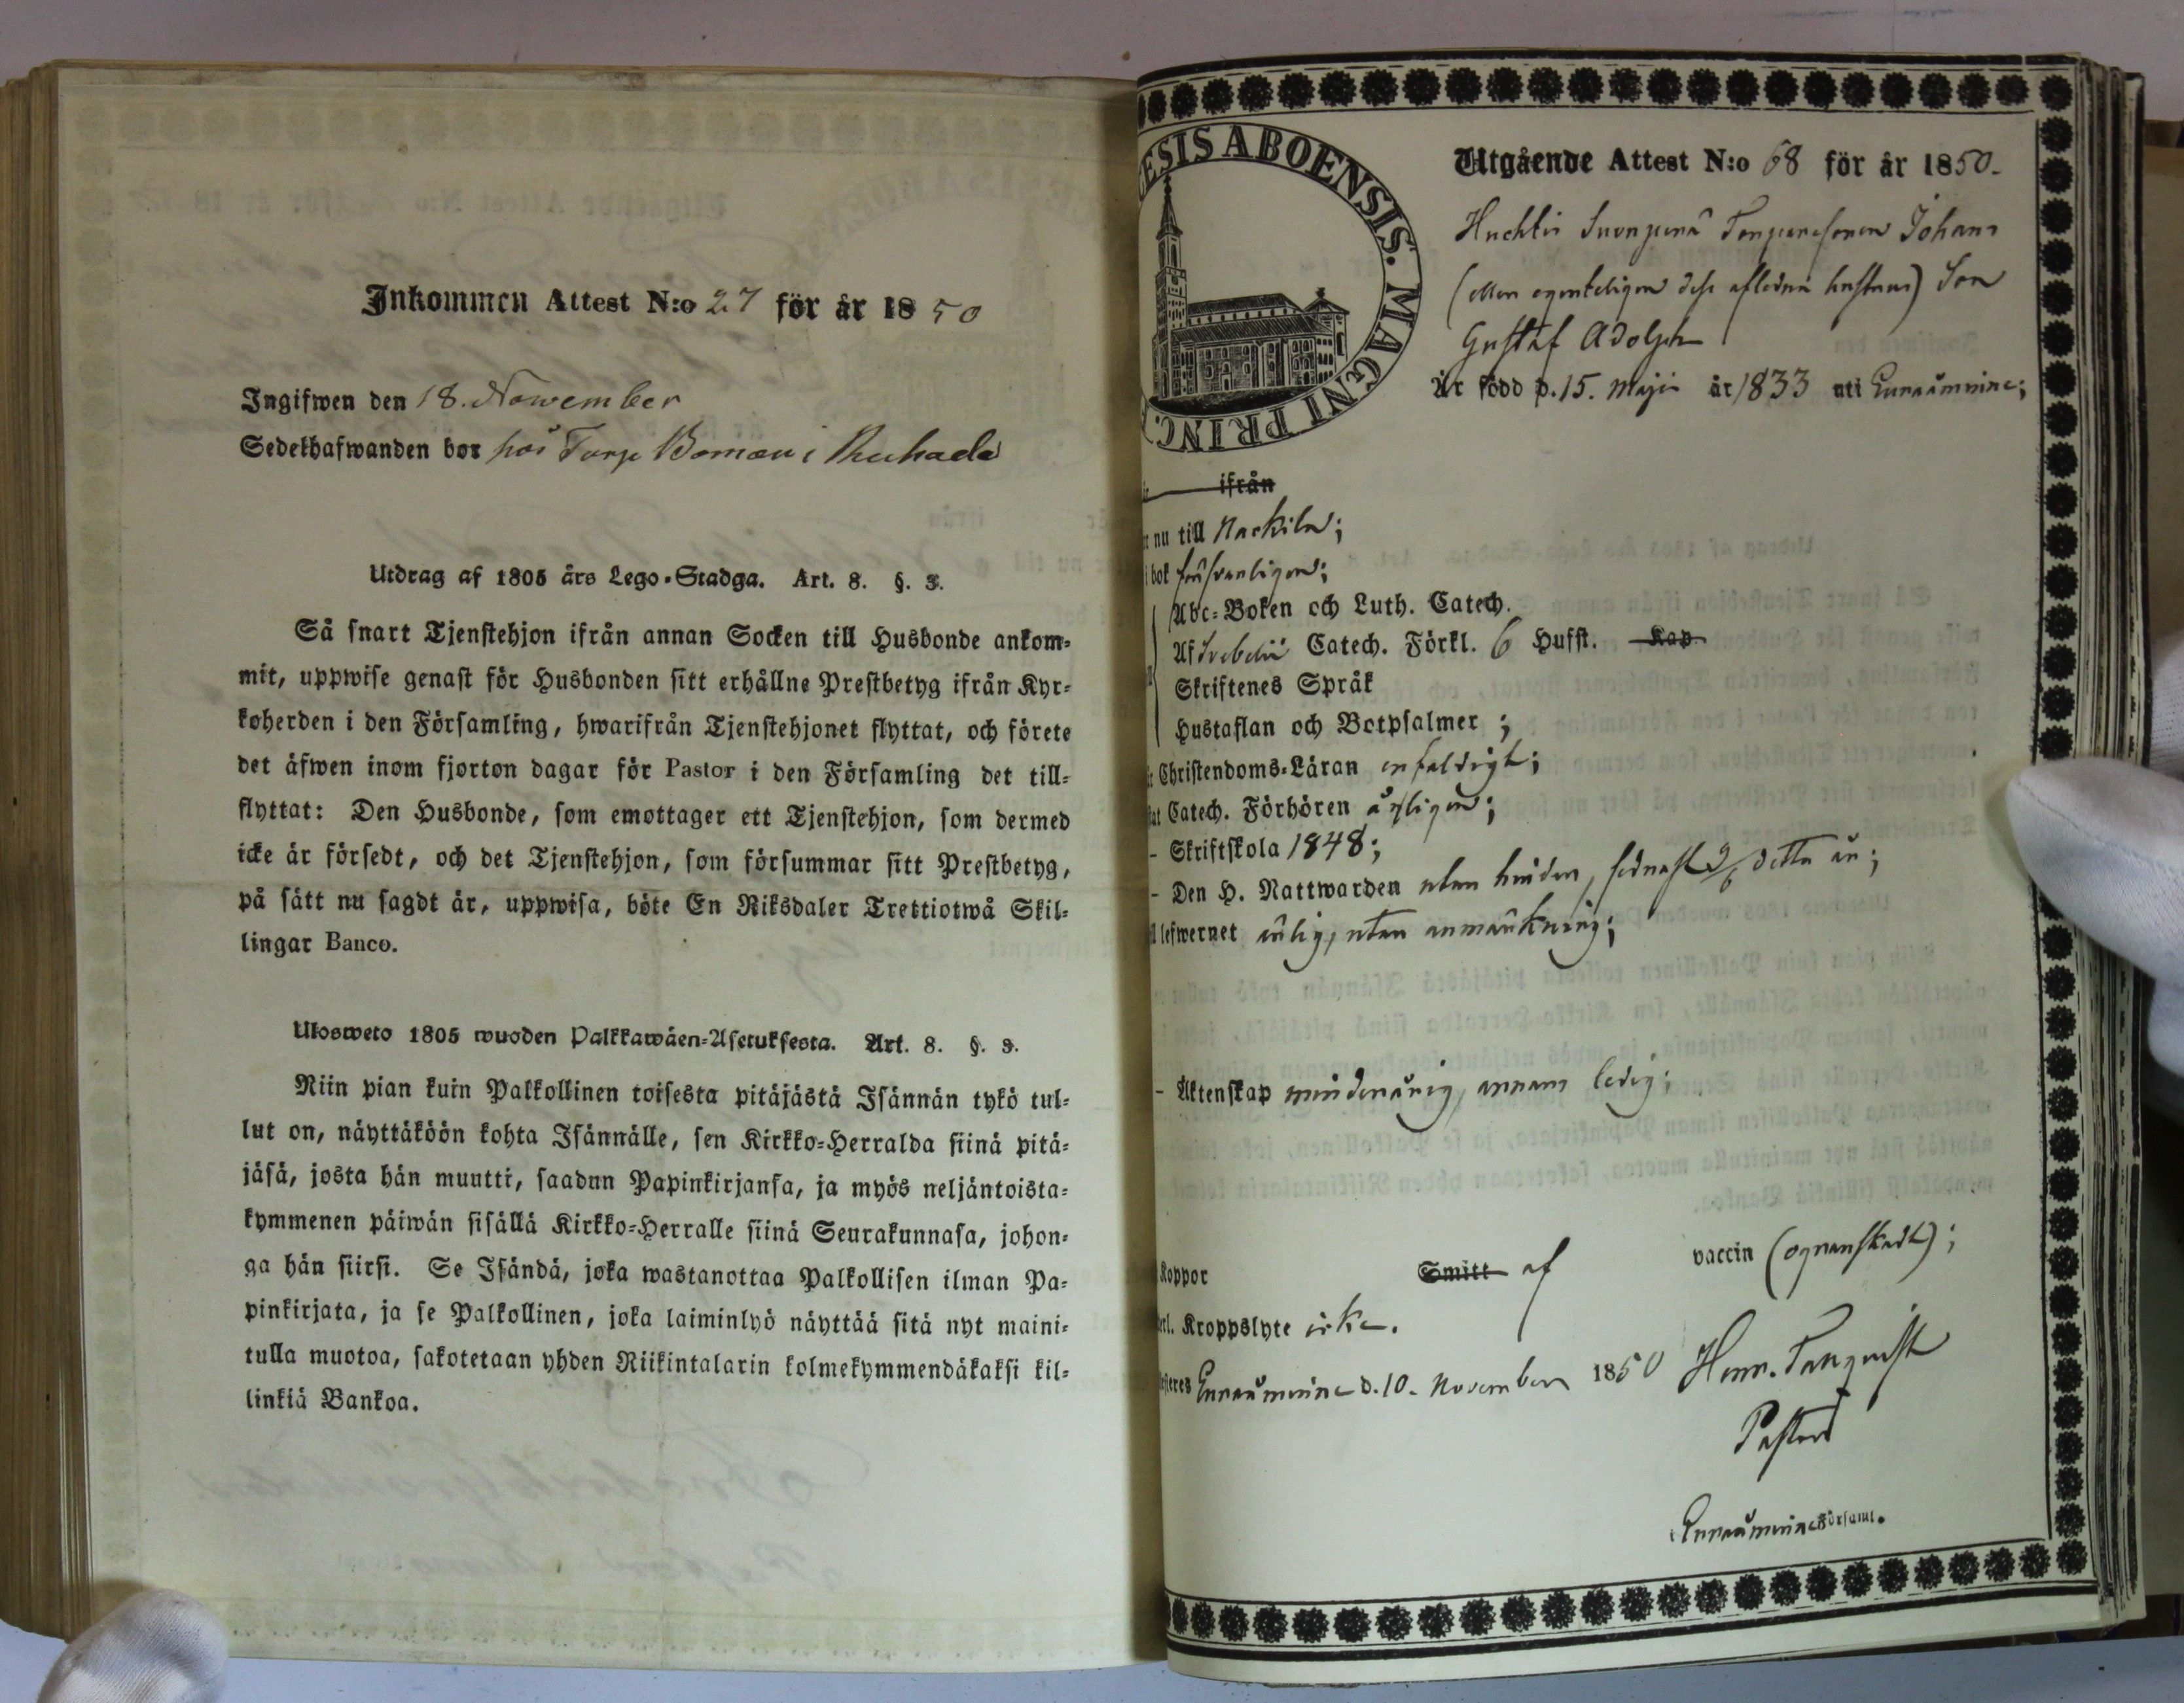 Inkommen Attest N:o 27 för år 1850
Ingifwen den 18. November
Sedelhafwanden bor hos Torp Boman i
Utdrag af 1805 års Lego-Stadga. Art. 8. §. 3.
Så snart Tjenstehjon ifrån annan Socken till Husbonde ankom-
mit, uppwise genast för Husbonden sitt erhållne Prestbetyg ifrån Kyr-
koherden i den Församling, hwarifrån Tjenstehjonet flyttat, och förete
det äfwen inom fjorton dagar för Pastor i den Församling det till-
flyttat: Den Husbonde, som emottager ett Tjenstehjon, som dermed
icke är försedt, och det Tjenstehjon, som försummar sitt Prestbetyg,
på sätt nu sagdt är, uppwisa, böte En Riksdaler Trettiotwå Skil-
lingar Banco.
Ulosweto 1805 wuoden Palkkawäen-Asetuksesta. Art. 8. §. 3.
Niin pian kuin Palkollinen toisesta pitäjästä Isännän tykö tul-
lut on, näyttäköön kohta Isännälle, sen Kirkko-Herralda siinä pitä-
jäsä, josta hän muutti, saadun Papinkirjansa, ja myös neljäntoista-
kymmenen päiwän sisällä Kirkko-Herralle siinä Seurakunnasa, johon-
ga hän siirsi. Se Isändä, joka wastanottaa Palkollisen ilman Pa-
pinkirjata, ja se Palkollinen, joka laiminlyö näyttää sitä nyt maini-
tulla muotoa, sakotetaan yhden Riikintalarin kolmekymmendäkaksi kil-
linkiä Bankoa.
ESIS ABOENSIS. MAGNI PRINC.
Utgående Attest N:o 68 för år 1850.
Suonperä Johans
(eller egenteligen dess aflidna hustrus) Son
Gustaf Adolph
Är född d. 15. Maji år 1833 uti Euraåminne;
ifrån
nu till Nackila;
i bok försvarligen;
Abc-Boken och Luth. Catech.
Af Svebelii Catech. Förkl. 6 Hufst. Kap.
Skriftenes Språk
Hustaflan och Botpsalmer;
Christendoms-Läran enfaldigt;
Catech. Förhören årligen;
- Skriftskola 1848;
- Den H. Nattwarden utan hinder, sednast 9/6 detta år;
lefwernet ärlig, utan anmärkning;
- Äktenskap minderårig, annars ledig;
Koppor Smitt af vaccin (ogranskadt);
Kroppslyte icke.
Euraåminne d. 10. November 1850 Henr. Tanquist
Pastor
Euraåminne Församl.